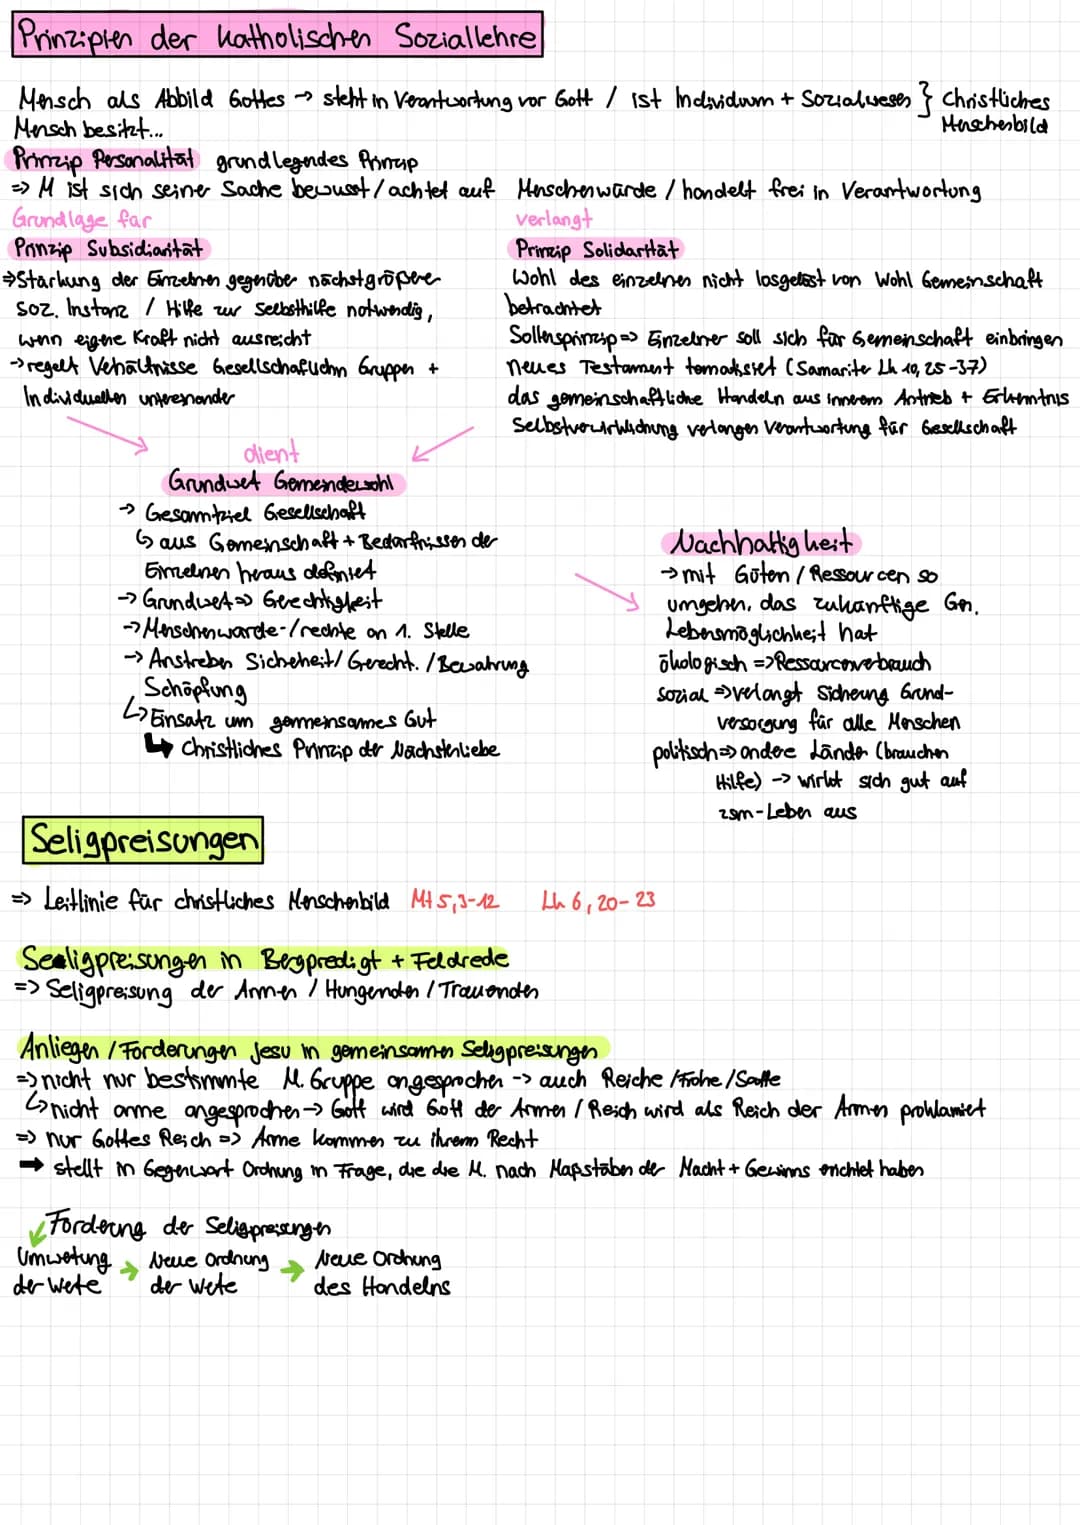 Prinzipien der katholischen Soziallehre
Mensch als Abbild Gottes → steht in Verantwortung vor Gott / ist Individuum + Sozialwesen } Christliches
Menschenbild
Mensch besitzt...
Prinzip Personalität grundlegendes Prinzip
⇒ M ist sich seiner Sache bewusst / achtet auf Menschenwürde / handelt frei in Verantwortung
Grundlage für
Prinzip Subsidiarität
⇒ Stärkung der Einzelnen gegenüber nächstgrößere
soz. Instanz / Hilfe zur Selbsthilfe notwendig,
wenn eigene Kraft nicht ausreicht
→ regelt Verhältnisse Gesellschaftlichn Gruppen +
Individuellen untereinander
verlangt
Prinzip Solidarität
Wohl des einzelnen nicht losgelöst von Wohl Gemeinschaft
betrachtet
Sollensprinzip ⇒ Einzelner soll sich für Gemeinschaft einbringen
neues Testament (Samariter Lk 10, 25-37)
das gemeinschaftliche Handeln aus innerem Antrieb + Erkenntnis
Selbstverwirklichung verlangen Verantwortung für Gesellschaft
dient
Grundwert Gemeindewohl
→ Gesamtziel Gesellschaft
↳ aus Gemeinschaft + Bedürfnissen der
Einzelnen heraus definiert
→ Grundwert ⇒ Gerechtigkeit
→ Menschenwürde-/rechte an 1. Stelle
→ Anstreben Sicherheit / Gerecht. / Bewahrung
Schöpfung
↳ Einsatz um gemeinsames Gut
↳ Christliches Prinzip der Nächstenliebe
Nachhaltigkeit
→ mit Güten / Ressourcen so
umgehen, das zukünftige Gen.
Lebensmöglichkeit hat
ökologisch ⇒ Ressourcenverbrauch
sozial ⇒ verlangt Sicherung Grund-
versorgung für alle Menschen
politisch ⇒ andere Länder (brauchen
Hilfe) → wirkt sich gut auf
zsm-Leben aus
Seligpreisungen
⇒ Leitlinie für christliches Menschenbild Mt 5,3-12 Lk 6, 20-23
Seeligpreisungen in Bergpredigt + Feldrede
⇒ Seligpreisung der Armen / Hungernden / Trauernden
Anliegen / Forderungen Jesu in gemeinsamen Seligpreisungen
⇒ nicht nur bestimmte M. Gruppe angesprochen → auch Reiche / Frohe / Satte
↳ nicht arme angesprochen → Gott wird Gott der Armen / Reich wird als Reich der Armen proklamiert
⇒ nur Gottes Reich ⇒ Arme kommen zu ihrem Recht
➡ stellt in Gegenwart Ordnung in Frage, die die M. nach Maßstäben der Macht + Gewinns errichtet haben
Forderung der Seligpreisungen
Umwertung → Neue Ordnung → Neue Ordnung
der Werte der Werte des Handelns